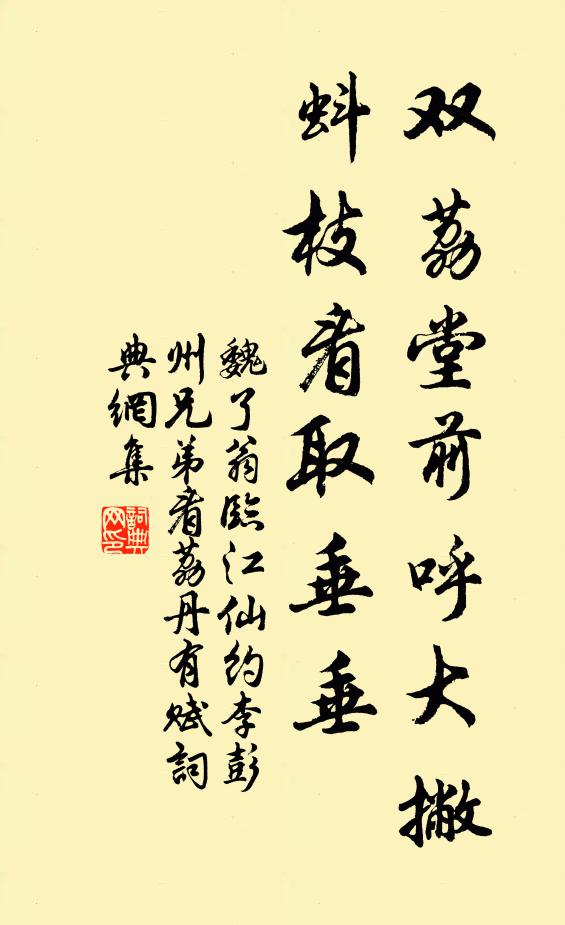 双荔堂前呼大撇
蚪枝看取垂垂
魏了翁臨江仙约李彭
州兄弟看荔丹有赋詞
典網集
詞典网印